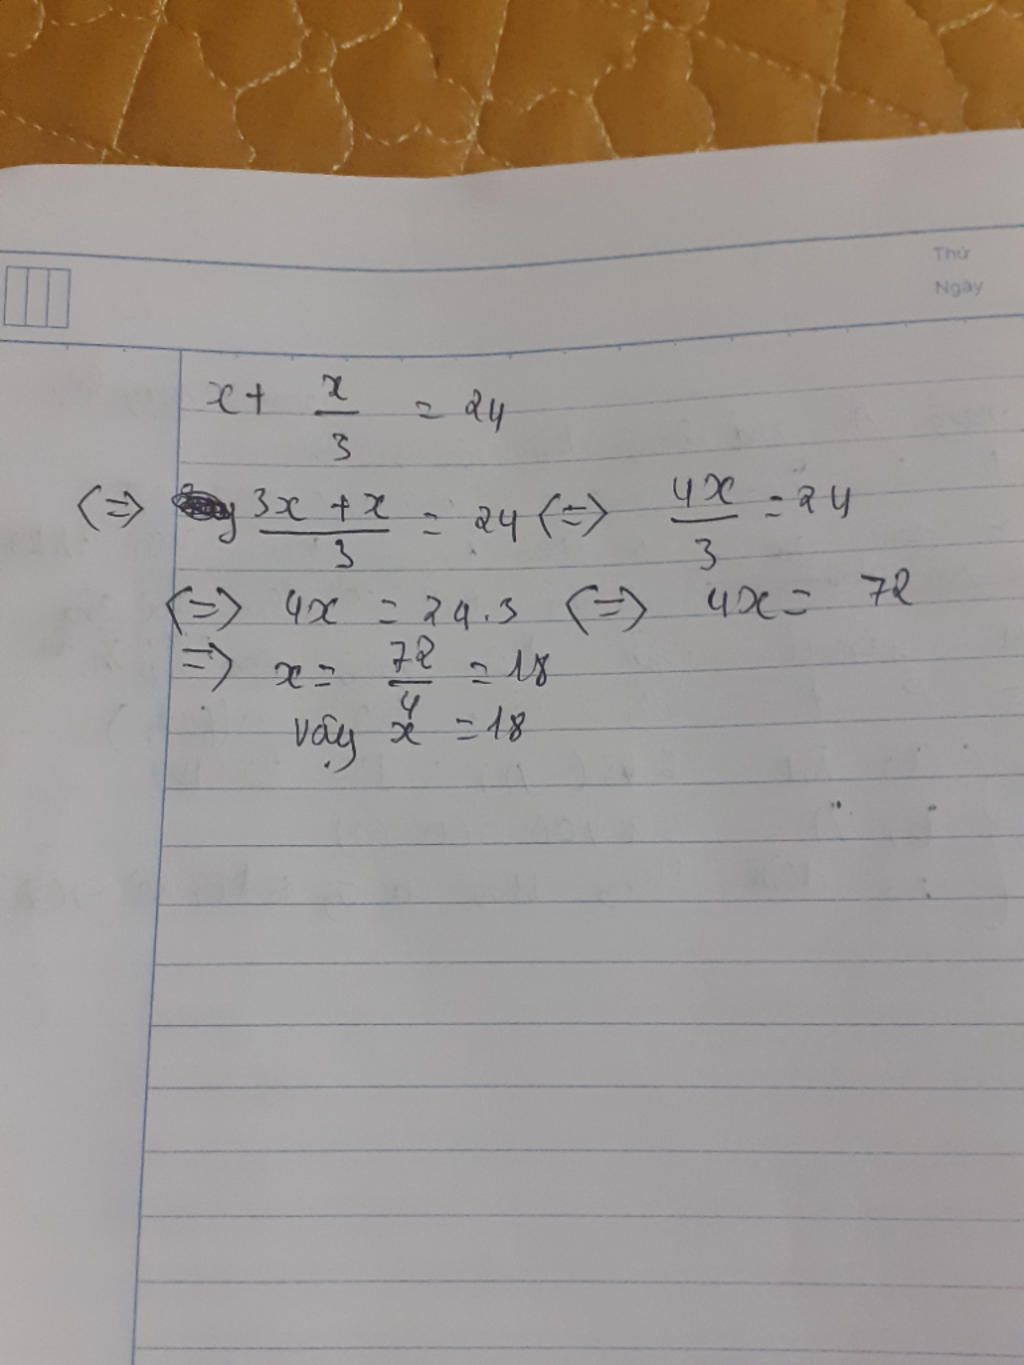 Thứ
Ngày
x + x/3 = 24
<=> 3x + x/3 = 24 <=> 4x/3 = 24
<=> 4x = 24.3 <=> 4x = 72
=> x = 72/4 = 18
vậy x = 18